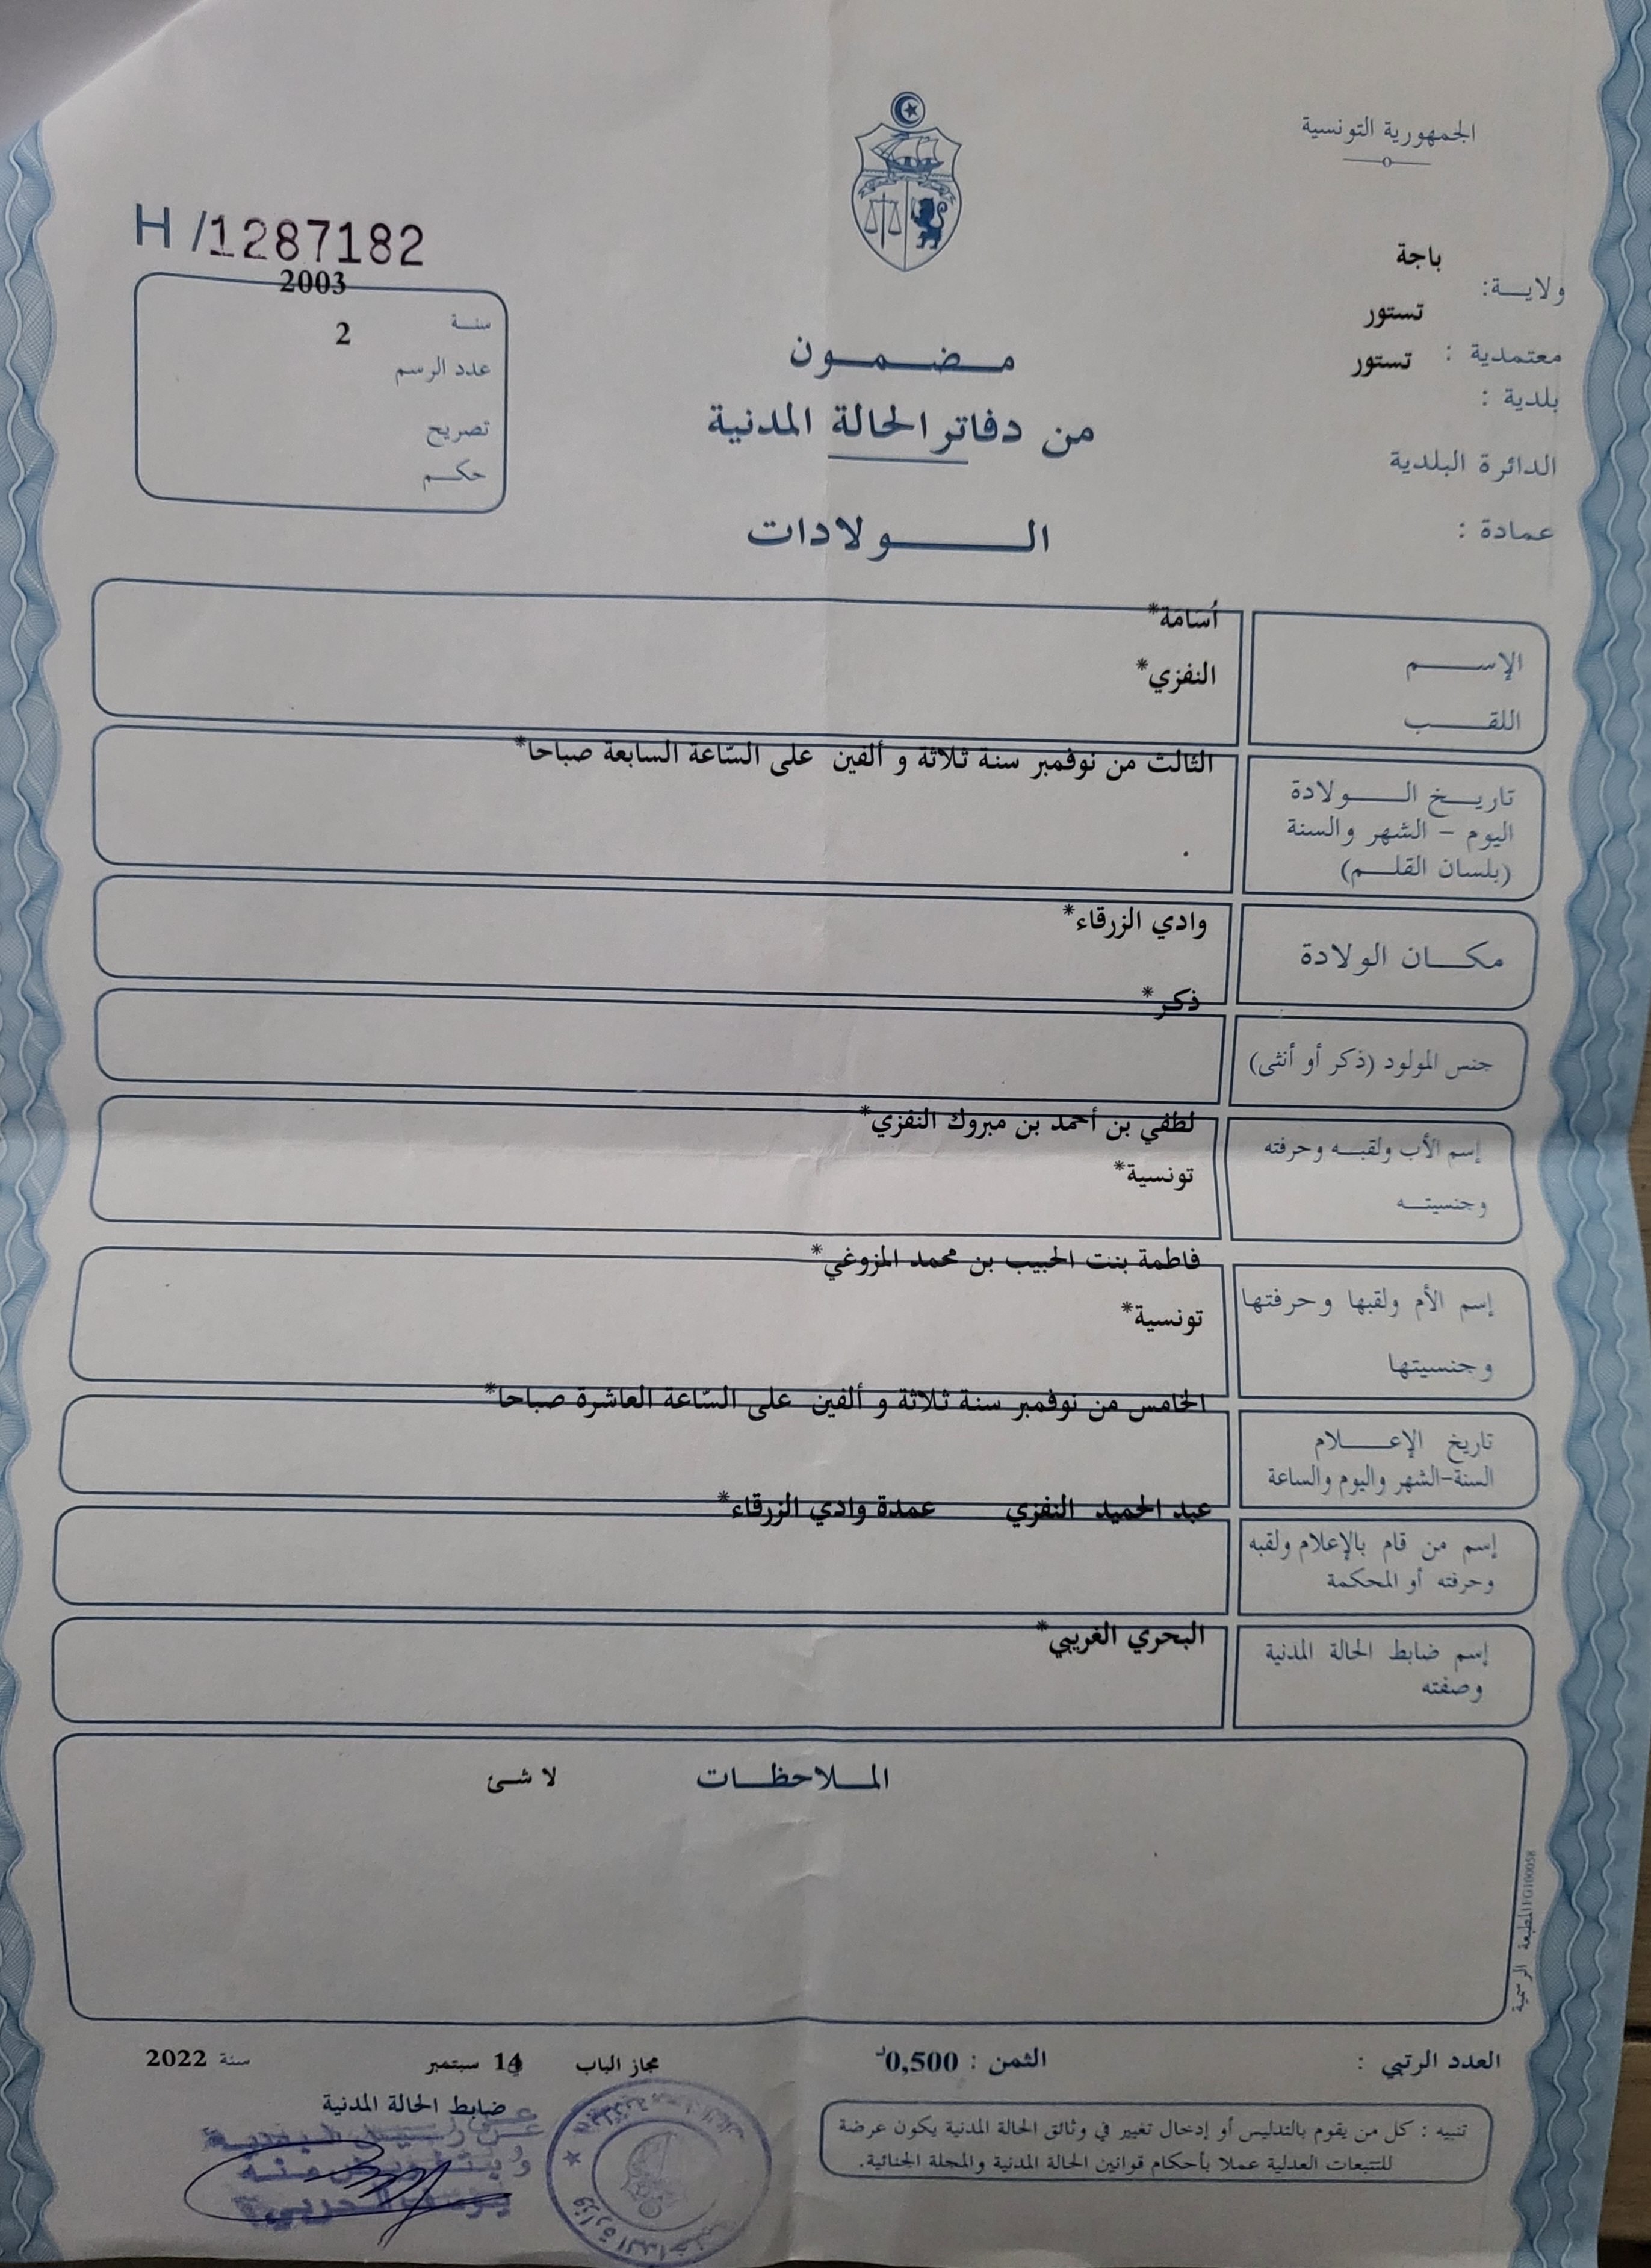 الجمهورية التونسية
H /1287182
ولايـــة: باجة
معتمدية : تستور
بلدية : تستور
الدائرة البلدية
عمادة :
2003
سنـة
2
عدد الرسم
تصريح
حكـم
مـضـمـون
من دفاتر الحالة المدنية
الـــولادات
الإســـم
أسَامَة*
اللقـــب
النفزي*
تاريــخ الـــولادة
اليوم – الشهر والسنة
(بلسان القلـــم)
الثالث من نوفمبر سنة ثلاثة و ألفين على السّاعة السابعة صباحا*
مكـــان الولادة
وادي الزرقاء*
جنس المولود (ذكر أو أنثى)
ذكر*
إسم الأب ولقبـــه وحرفته
وجنسيتـــه
لطفي بن أحمد بن مبروك النفزي*
تونسية*
إسم الأم ولقبها وحرفتها
وجنسيتها
فاطمة بنت الحبيب بن محمد المزوغي*
تونسية*
تاريخ الإعـــلام
السنة-الشهر واليوم والساعة
الخامس من نوفمبر سنة ثلاثة و ألفين على السّاعة العاشرة صباحا*
إسم من قام بالإعلام ولقبه
وحرفته أو المحكمة
عبد الحميد النفزي عمدة وادي الزرقاء*
إسم ضابط الحالة المدنية
وصفته
البحري الغريبي*
المـــلاحظـــات
لا شئ
المطبعة الرسمية
العدد الرتبي :
الثمن : 0,500د
مجاز الباب 14 سبتمبر سنة 2022
ضابط الحالة المدنية
تنبيه : كل من يقوم بالتدليس أو إدخال تغيير في وثائق الحالة المدنية يكون عرضة
للتتبعات العدلية عملا بأحكام قوانين الحالة المدنية والمجلة الجنائية.